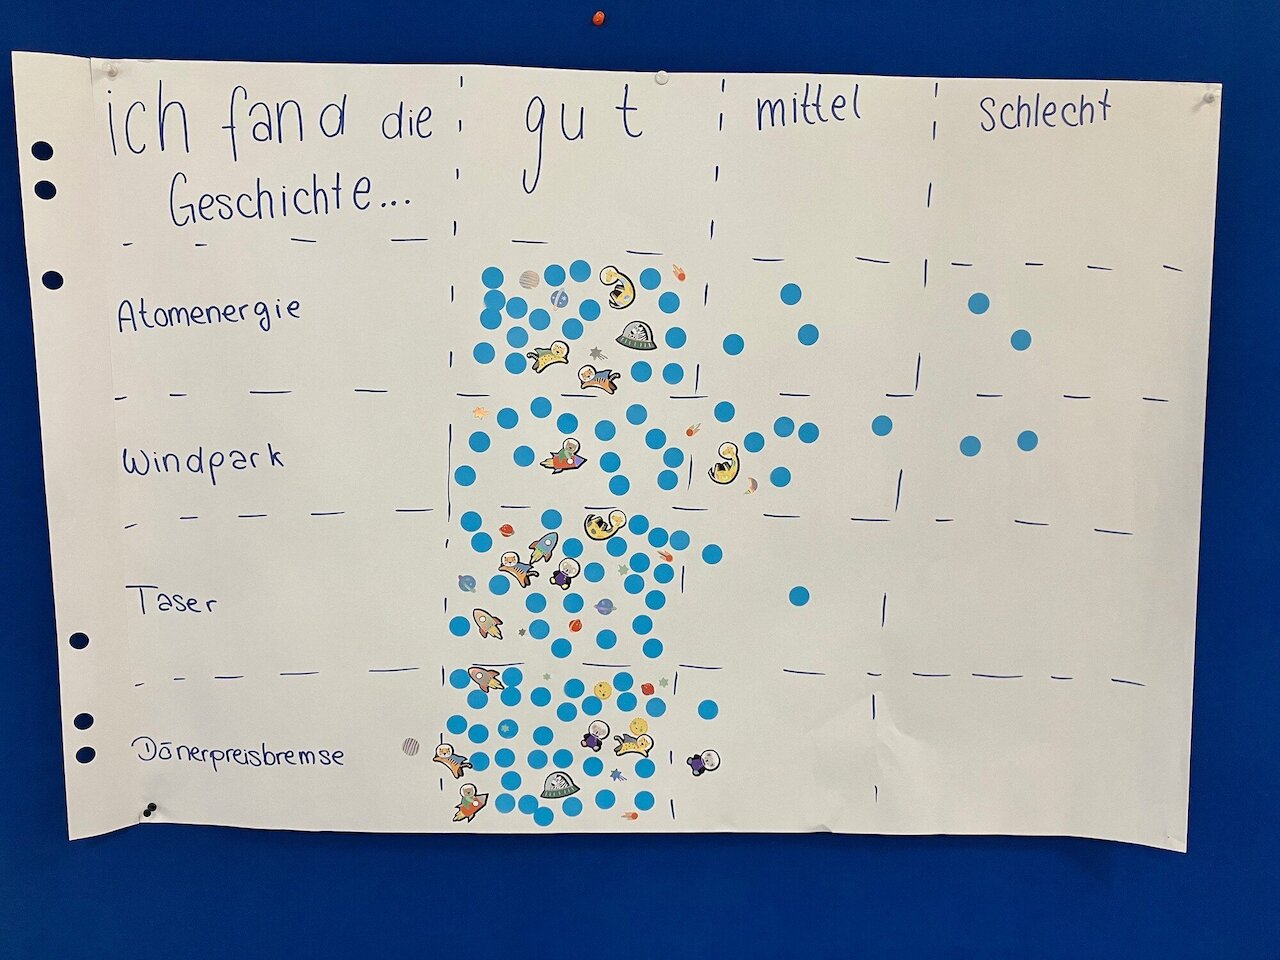 ich fand die gut mittel schlecht
Geschichte...
Atomenergie
Windpark
Taser
Dönerpreisbremse